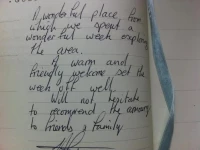 A wonderful place from
which we spent a
wonderful week exploring
the area.
A warm and
friendly welcome set the
week off well.
Will not hesitate
to recommend the
to friends & family.